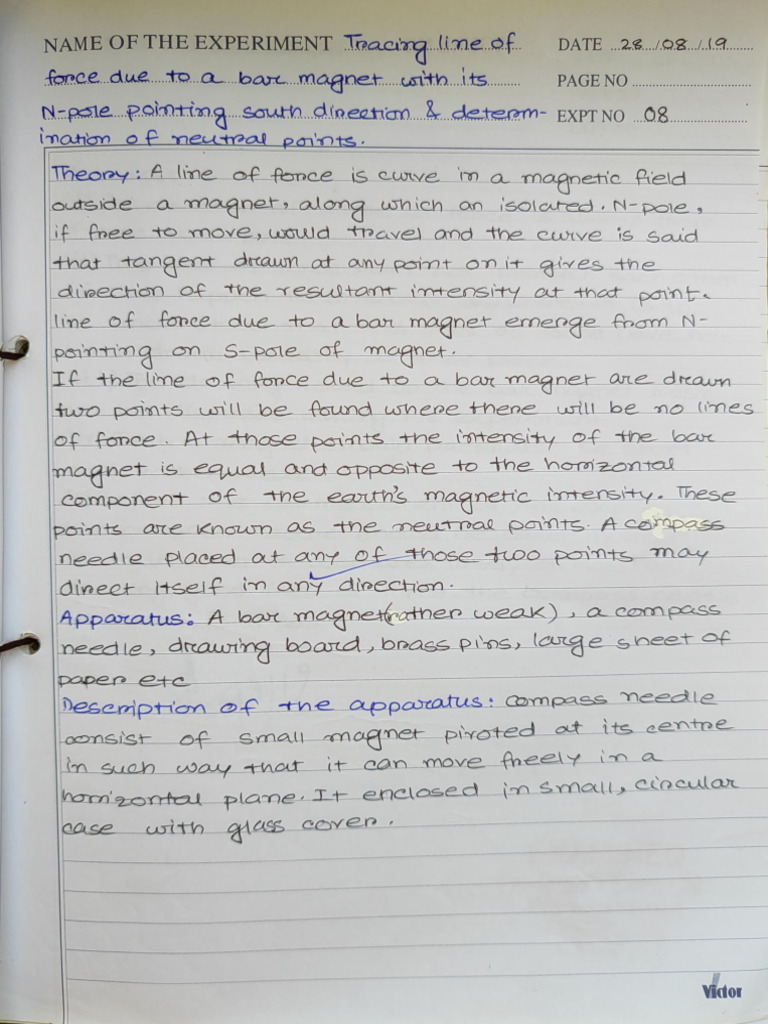 NAME OF THE EXPERIMENT Tracing line of DATE 28/08/19
force due to a bar magnet with its PAGE NO
N-pole pointing south direction & determ- EXPT NO 08
ination of neutral points.
Theory: A line of force is curve in a magnetic field
outside a magnet, along which an isolated. N-pole,
if free to move, would travel and the curve is said
that tangent drawn at any point on it gives the
direction of the resultant intensity at that point.
line of force due to a bar magnet emerge from N-
pointing on S-pole of magnet.
If the line of force due to a bar magnet are drawn
two points will be found where there will be no lines
of force. At those points the intensity of the bar
magnet is equal and opposite to the horizontal
component of the earth's magnetic intensity. These
points are known as the neutral points. A compass
needle placed at any of those two points may
direct itself in any direction.
Apparatus: A bar magnet(rather weak), a compass
needle, drawing board, brass pins, large sheet of
paper etc
Description of the apparatus: compass needle
consist of small magnet pivoted at its centre
in such way that it can move freely in a
horizontal plane. It enclosed in small, circular
case with glass cover.
Victor